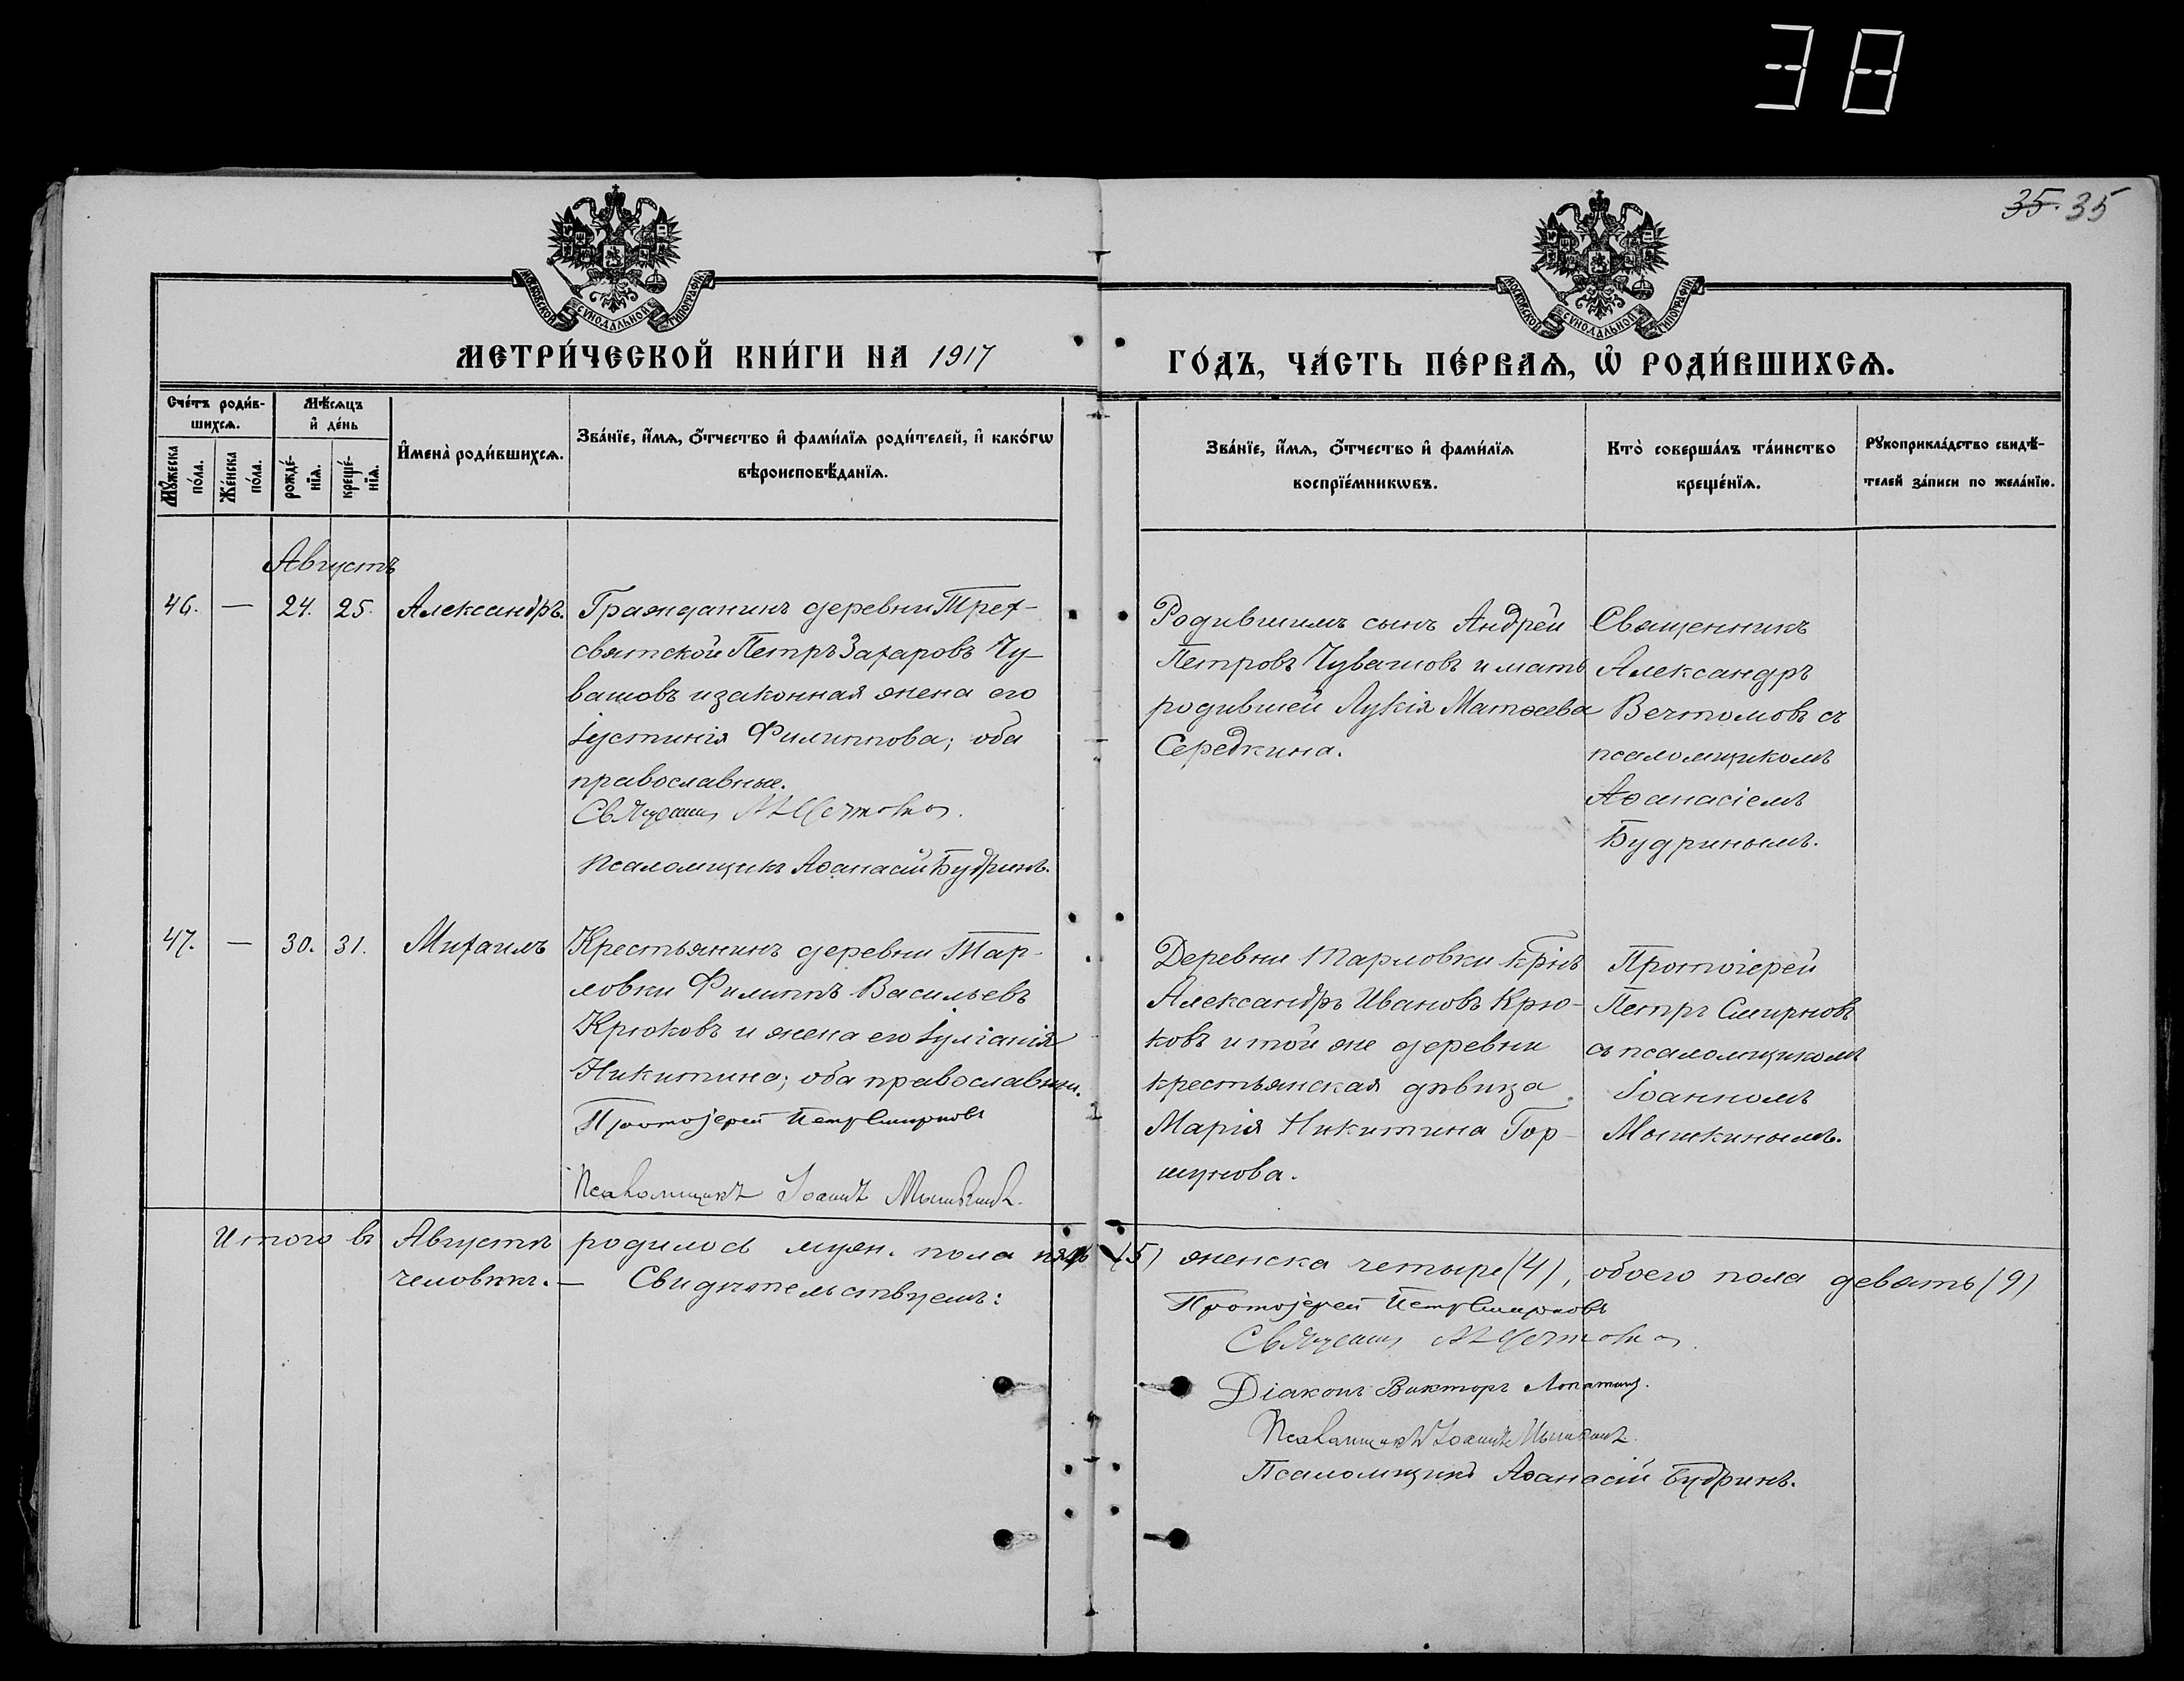 38
35. 35
МОСКОВСКОЙ СУНОДАЛЬНОЙ ТИПОГРАФІИ
МОСКОВСКОЙ СУНОДАЛЬНОЙ ТИПОГРАФІИ
МЕТРИ́ЧЕСКОЙ КНИ́ГИ НА 1917
ГО́ДЪ, ЧА́СТЬ ПЕ́РВАѦ, Ѡ҆ РОДИ́ВШИХСѦ.
Сче́тъ роди́в-
шихсѧ.
Мꙋ́жеска
по́ла.
Же́нска
по́ла.
Мѣ́сѧцъ
и҆ де́нь
рожде́-
нїѧ.
креще́-
нїѧ.
И҆мена̀ роди́вшихсѧ.
Зва́нїе, и҆́мѧ, ѻ҆́тчество и҆ фами́лїѧ роди́телей, и҆ како́гѡ
вѣроисповѣ́данїѧ.
Зва́нїе, и҆́мѧ, ѻ҆́тчество и҆ фами́лїѧ
воспрїе́мникѡвъ.
Кто̀ соверша́лъ та́инство
креще́нїѧ.
Рꙋкоприкла́дство свидѣ́-
телей за́писи по жела́нїю.
Августъ
46. — 24. 25. Александръ.
Гражданинъ деревни Трех-
святской Петръ Захаровъ Чу-
вашовъ и законная жена его
Іустинія Филиппова; оба
православные.
Псаломщикъ Аѳанасій Будринъ.
Родившимъ сынъ Андрей
Петровъ Чувашовъ и мать
родившей Лукія Матѳеева
Середкина.
Священникъ
Александръ
Вечтомовъ съ
псаломщикомъ
Аѳанасіемъ
Будринымъ.
47. — 30. 31. Михаилъ
Крестьянинъ деревни Тар-
ловки Филиппъ Васильевъ
Крюковъ и жена его Іуліанія
Никитина; оба православны.
Протоіерей Петръ Смирновъ
Псаломщикъ Іоаннъ Мышкинъ.
Деревни Тарловки кр̅нъ
Александръ Ивановъ Крю-
ковъ и той же деревни
крестьянская дѣвица
Марія Никитина Гор-
шунова.
Протоіерей
Петръ Смирновъ
съ псаломщикомъ
Іоанномъ
Мышкинымъ.
Итого въ Августѣ родилось муж. пола пять (5) женска четыре (4), обоего пола девять (9)
человѣкъ. — Свидѣтельствуемъ:
Протоіерей Петръ Смирновъ
Діаконъ Викторъ Лопатинъ.
Псаломщикъ Іоаннъ Мышкинъ.
Псаломщикъ Аѳанасій Будринъ.